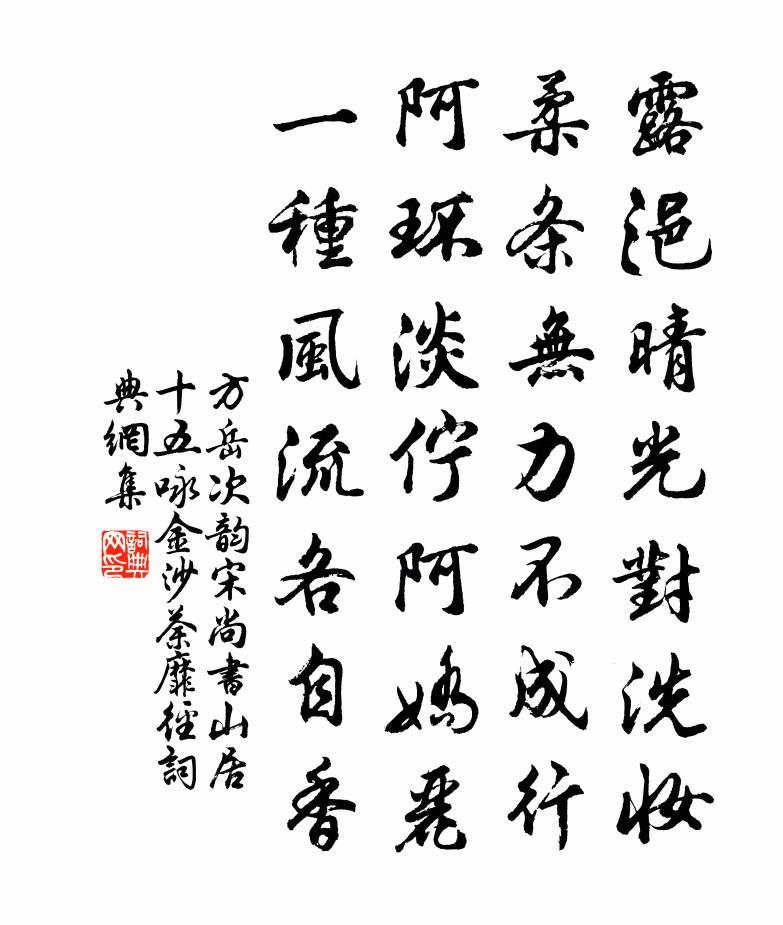 露浥晴光對洗妝
柔条無力不成行
阿环淡佇阿嬌麗
一種風流各自香
方岳次韵宋尚書山居
十五咏金沙荼靡徑詞
典網集
詞典
网印